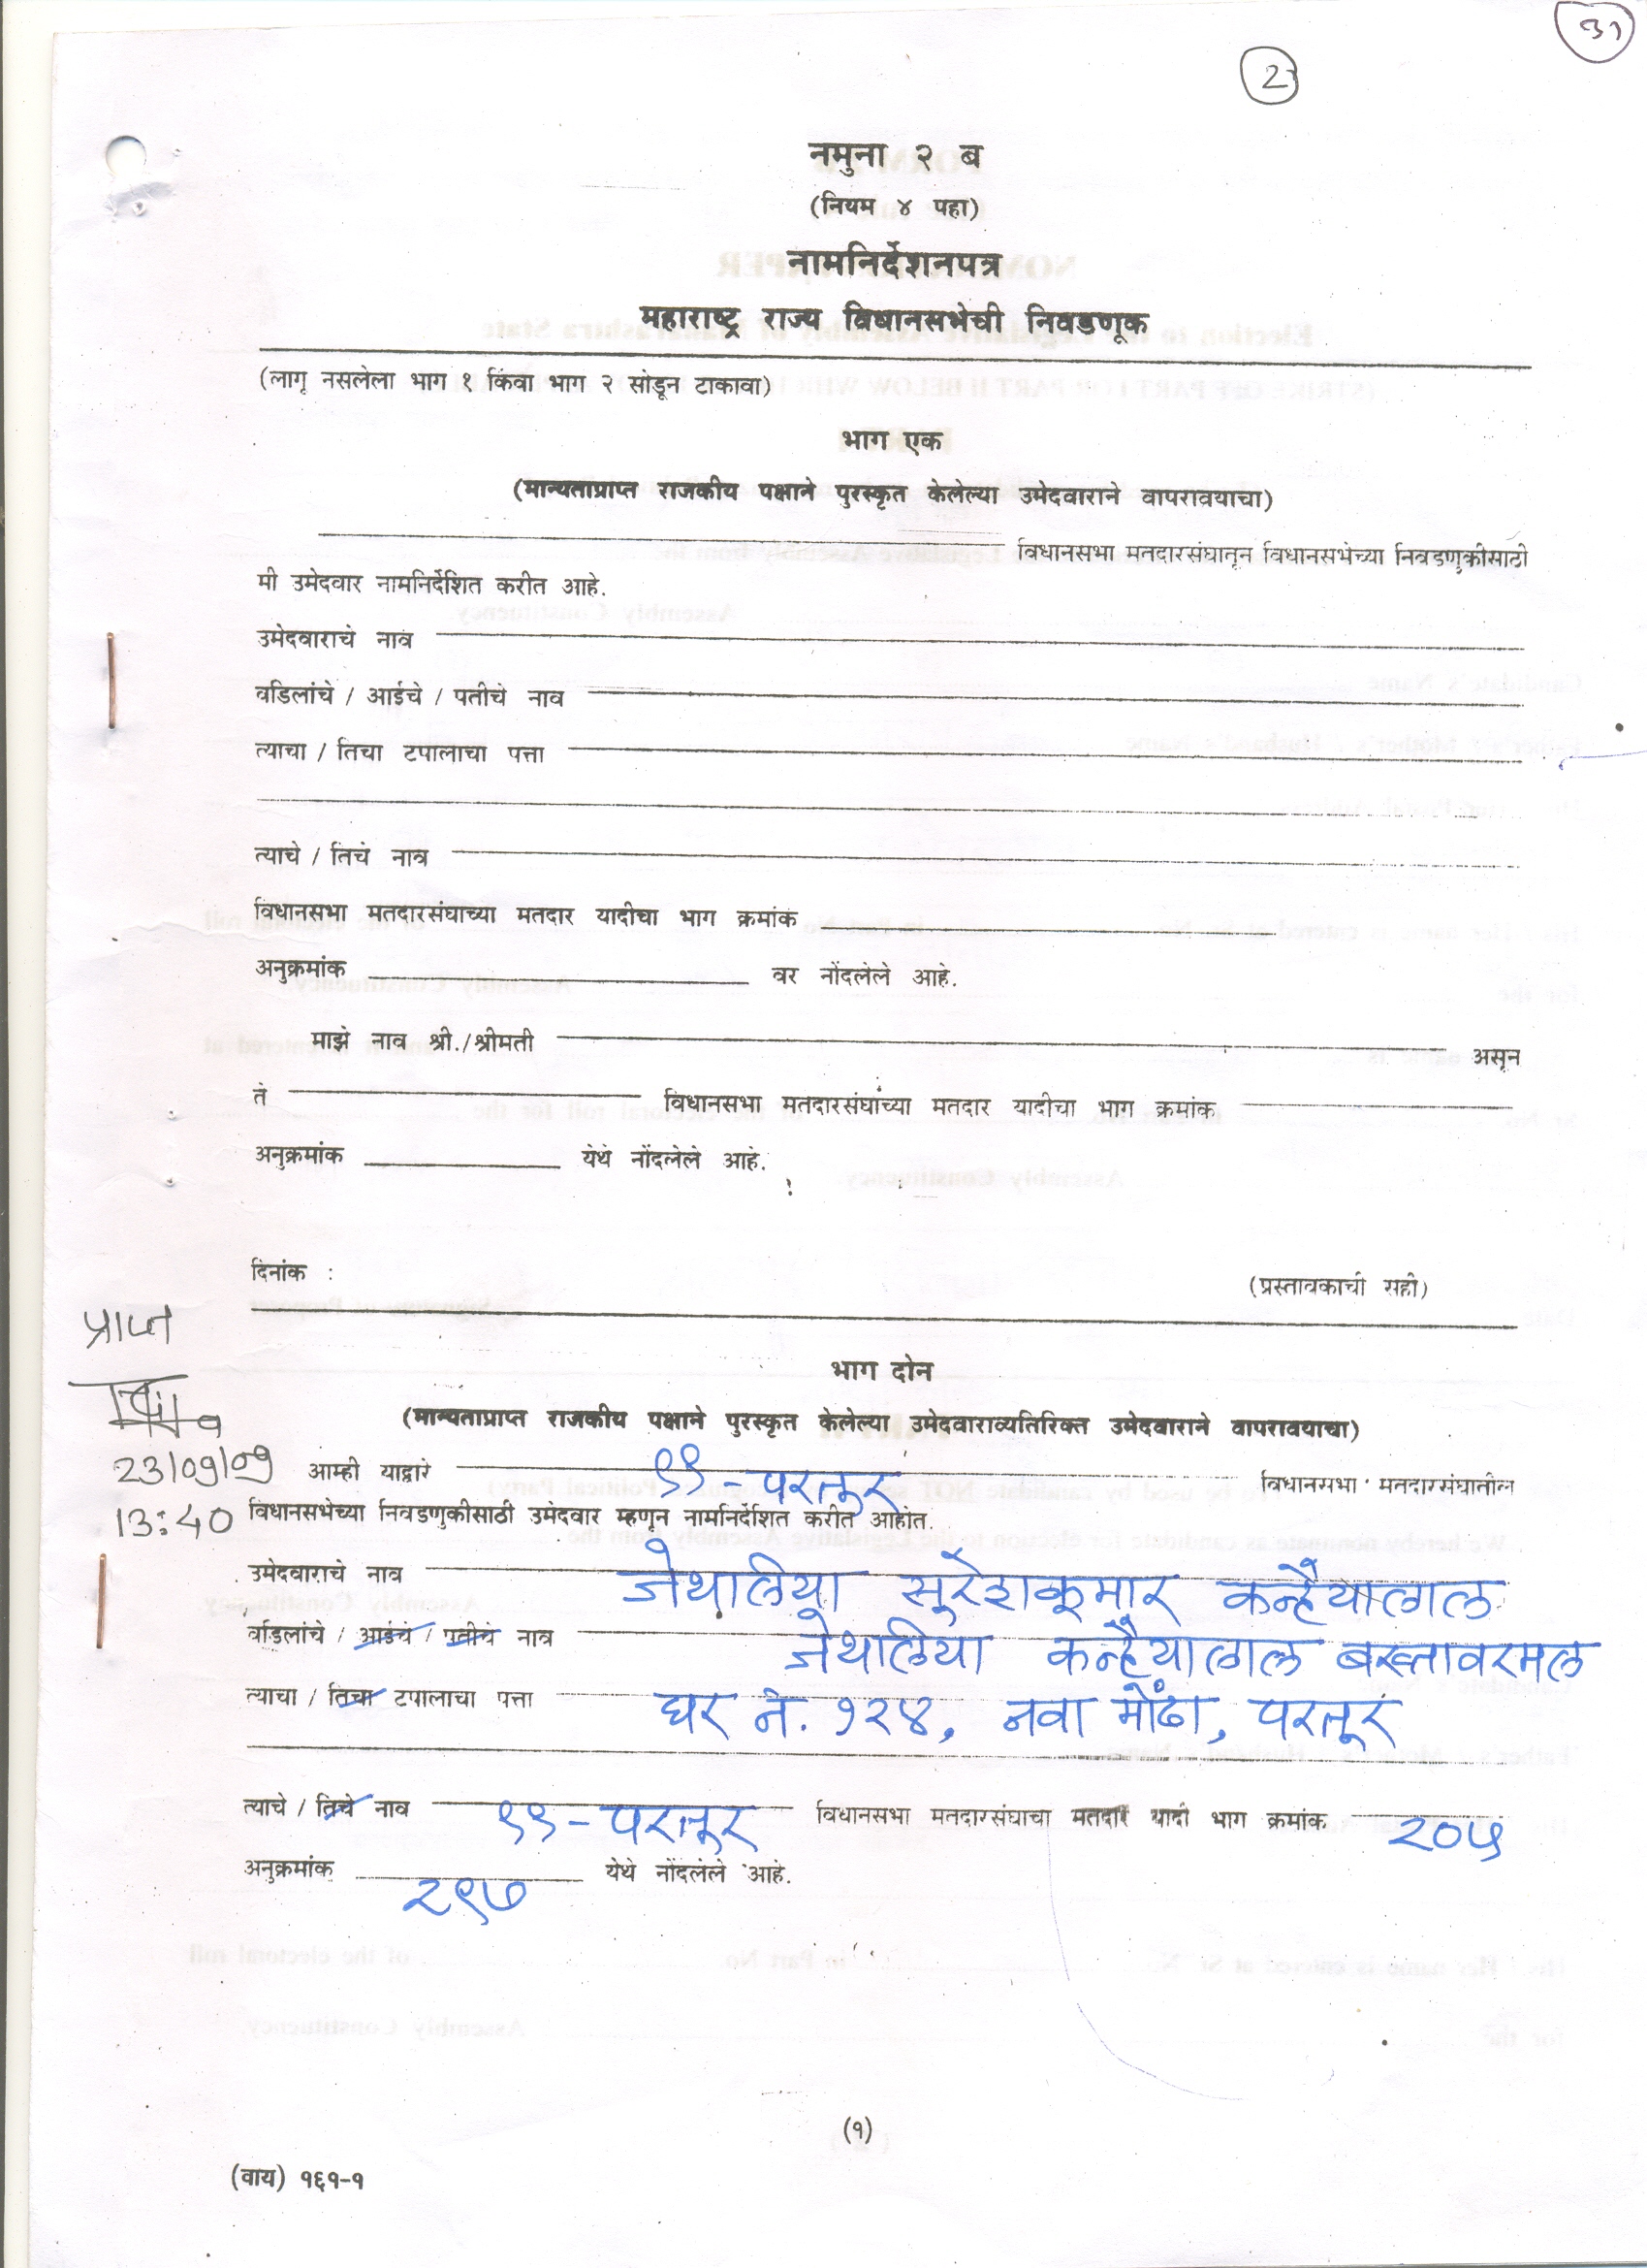 31
2
नमुना २ ब
(नियम ४ पहा)
नामनिर्देशनपत्र
महाराष्ट्र राज्य विधानसभेची निवडणूक
(लागू नसलेला भाग १ किंवा भाग २ सोडून टाकावा)
भाग एक
(मान्यताप्राप्त राजकीय पक्षाने पुरस्कृत केलेल्या उमेदवाराने वापरावयाचा)
विधानसभा मतदारसंघातून विधानसभेच्या निवडणुकीसाठी
मी उमेदवार नामनिर्देशित करीत आहे.
उमेदवाराचे नाव
वडिलांचे / आईचे / पतीचे नाव
त्याचा / तिचा टपालाचा पत्ता
त्याचे / तिचे नाव
विधानसभा मतदारसंघाच्या मतदार यादीचा भाग क्रमांक
अनुक्रमांक वर नोंदलेले आहे.
माझे नाव श्री./श्रीमती असून
ते विधानसभा मतदारसंघाच्या मतदार यादीचा भाग क्रमांक
अनुक्रमांक येथे नोंदलेले आहे.
दिनांक : (प्रस्तावकाची सही)
प्राप्त
भाग दोन
(मान्यताप्राप्त राजकीय पक्षाने पुरस्कृत केलेल्या उमेदवाराव्यतिरिक्त उमेदवाराने वापरावयाचा)
23/09/09 आम्ही याद्वारे ९९-परतूर विधानसभा मतदारसंघातील
13:40 विधानसभेच्या निवडणुकीसाठी उमेदवार म्हणून नामनिर्देशित करीत आहोत.
उमेदवाराचे नाव जेथालिया सुरेशकुमार कन्हैयालाल
वडिलांचे / आईचे / पतीचे नाव जेथालिया कन्हैयालाल बख्तावरमल
त्याचा / तिचा टपालाचा पत्ता घर नं. १२४, नवा मोंढा, परतूर
त्याचे / तिचे नाव ९९-परतूर विधानसभा मतदारसंघाचा मतदार यादी भाग क्रमांक २०५
अनुक्रमांक २९७ येथे नोंदलेले आहे.
(१)
(वाय) १६१-१